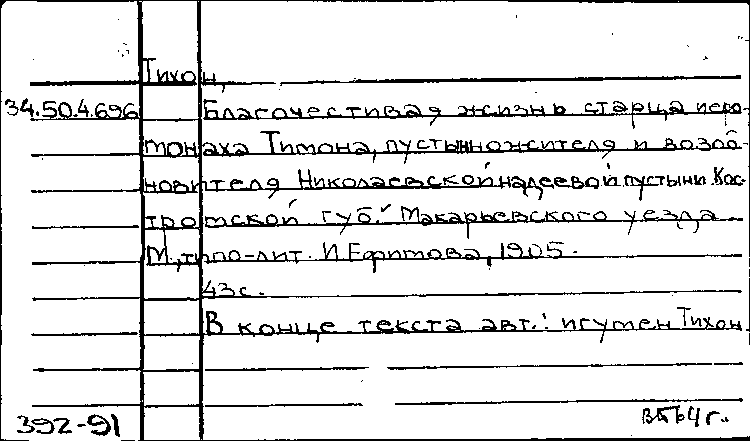 Тихон,
34.50.4.696 Благочестивая жизнь старца иеро-
монаха Тимона, пустынножителя и возоб-
новителя Николаевской надеевой пустыни Кос-
тромской губ. Макарьевского уезда
М., типо-лит. И Ефимова, 1905.
43 с.
В конце текста авт.: игумен Тихон.
392-91